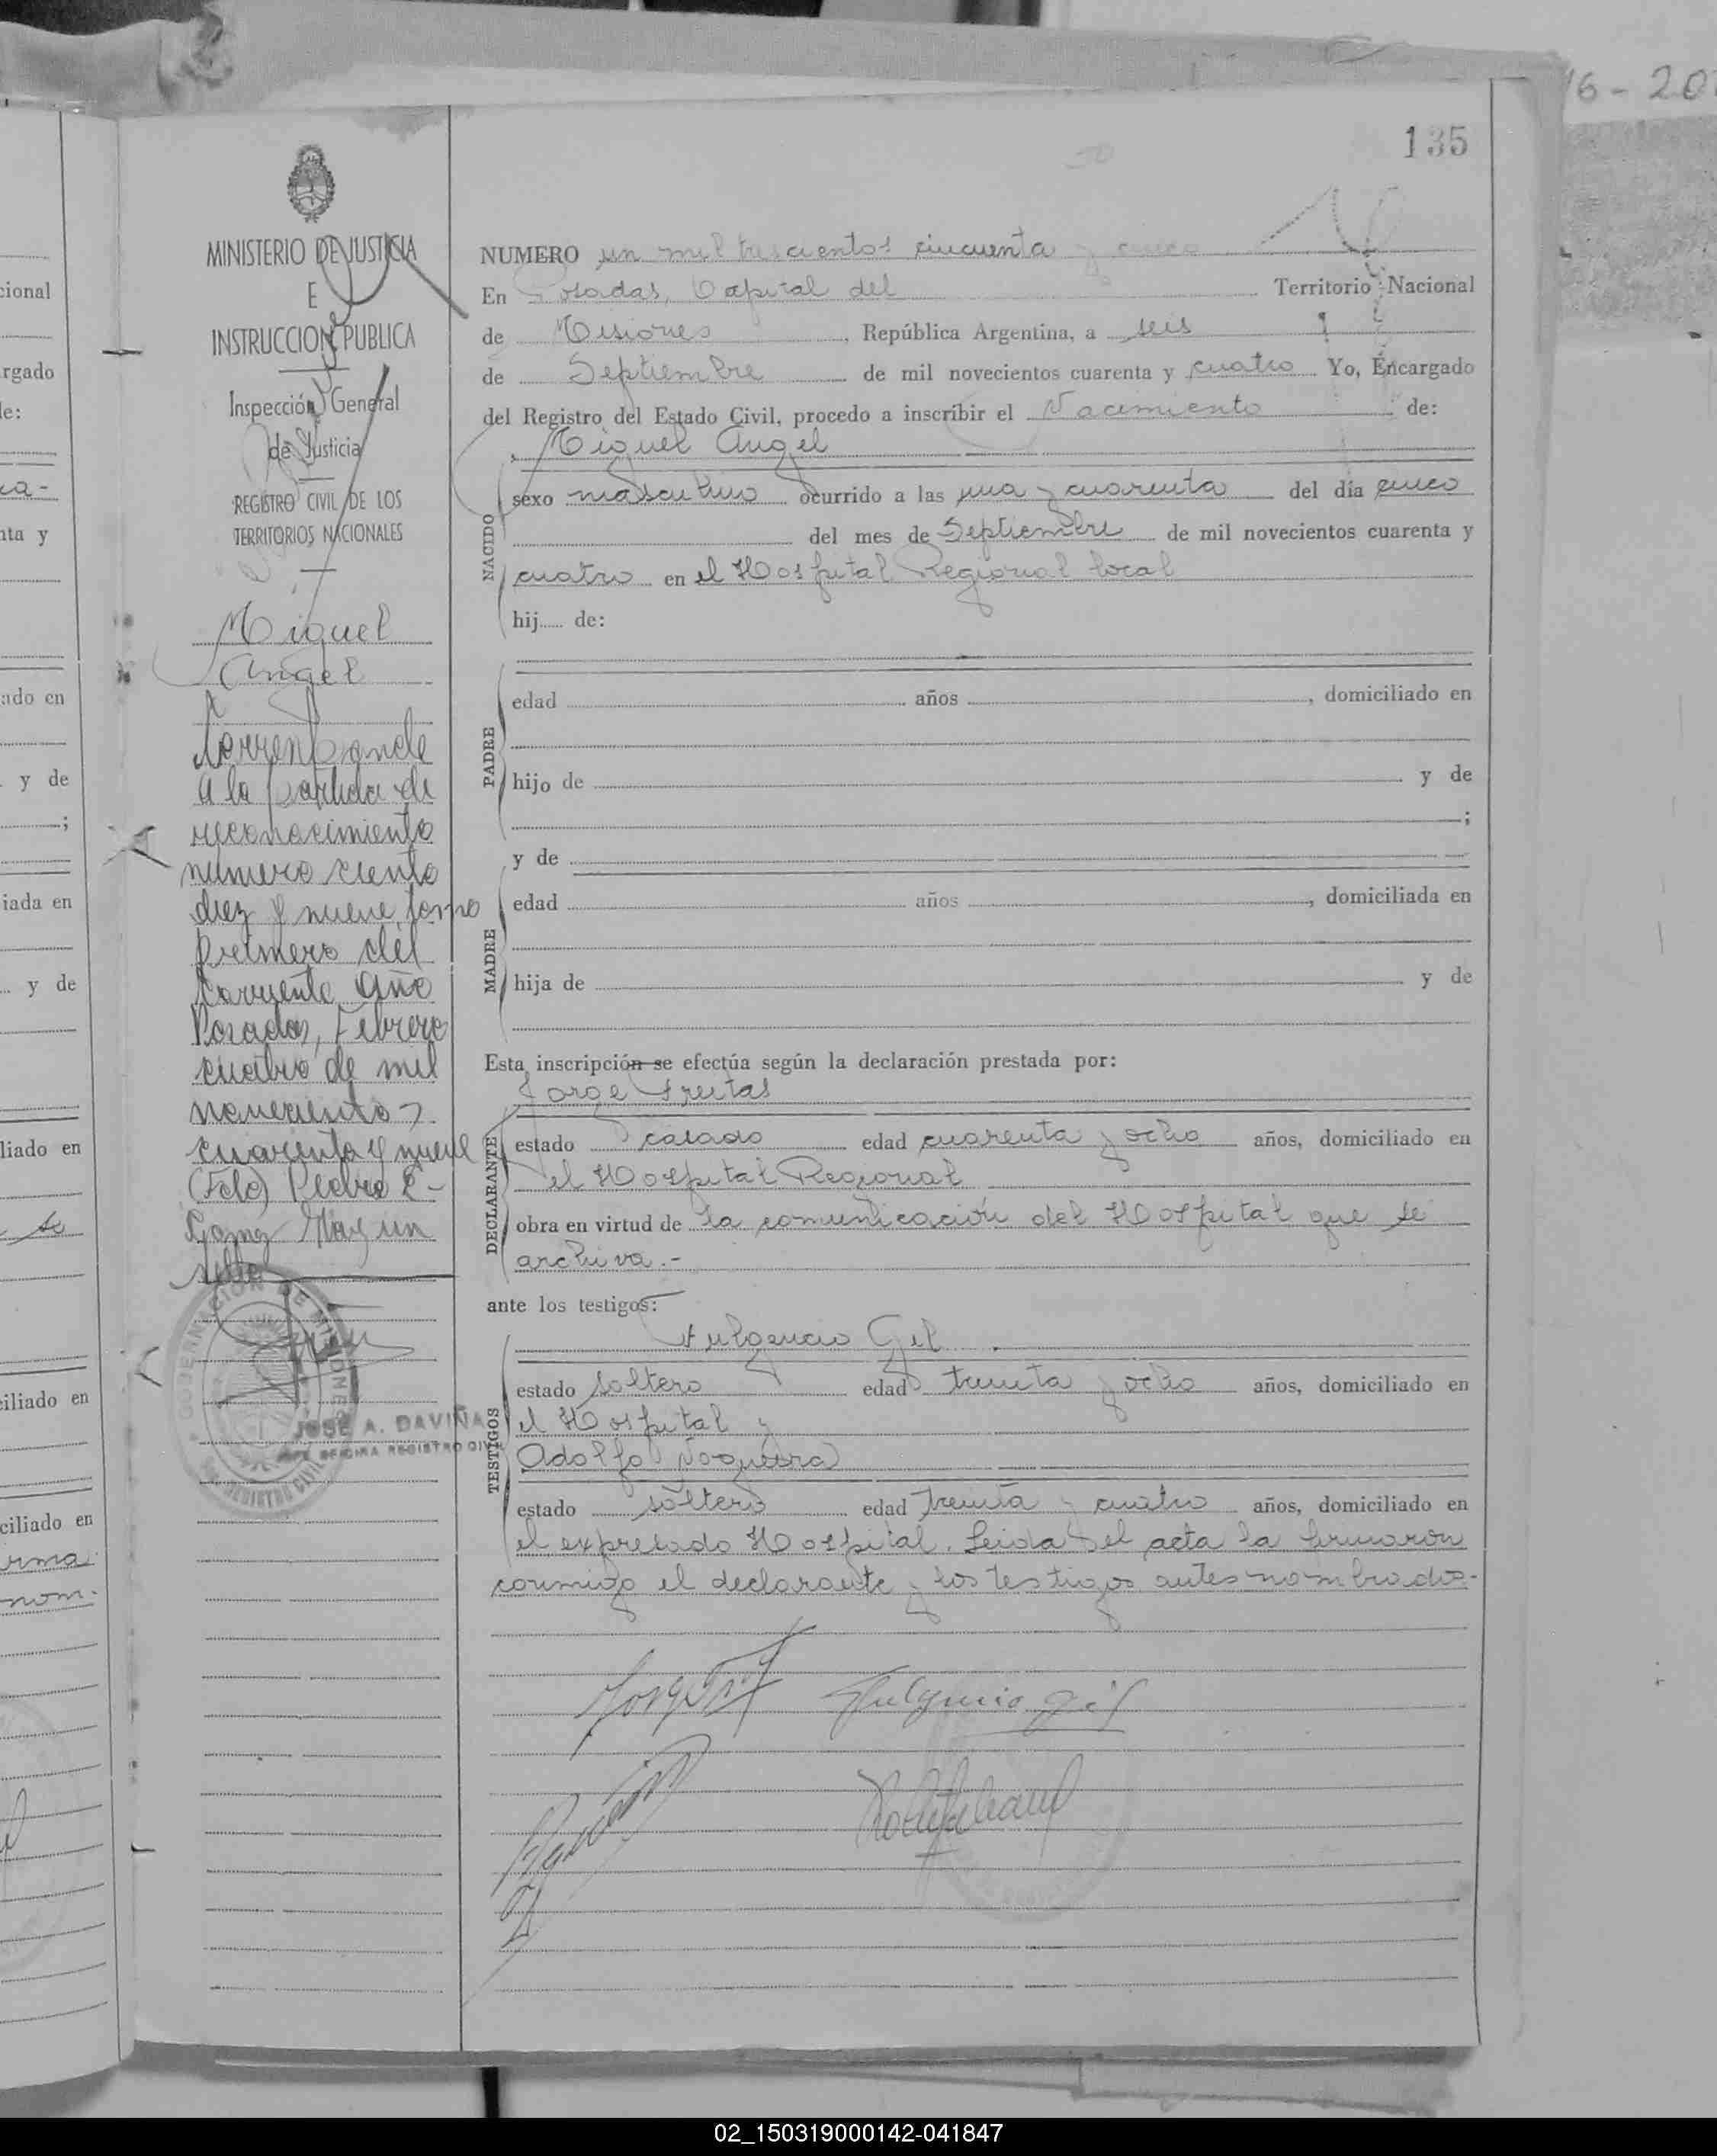 16-20
135
MINISTERIO DE JUSTICIA
E
INSTRUCCION PUBLICA
Inspección General
de Justicia
REGISTRO CIVIL DE LOS
TERRITORIOS NACIONALES
Miguel
Angel
Corresponde
a la partida de
reconocimiento
numero ciento
diez y nueve, tomo
primero del
corriente año
Posadas, Febrero
cuatro de mil
novecientos
cuarenta y nueve
(Fdo) Pedro E.
Gomez Hay un
sello
GOBERNACION DE MISIONES
REGISTRO CIVIL
JOSÉ A. DAVIÑA
JEFE OFICINA REGISTRO CIVIL
NUMERO un mil trescientos cincuenta y cinco
En Posadas, Capital del Territorio Nacional
de Misiones, República Argentina, a seis
de Septiembre de mil novecientos cuarenta y cuatro Yo, Encargado
del Registro del Estado Civil, procedo a inscribir el Nacimiento de:
Miguel Angel
NACIDO
sexo masculino ocurrido a las una y cuarenta del día cinco
del mes de Septiembre de mil novecientos cuarenta y
cuatro en el Hospital Regional local
hij..... de:
PADRE
edad años , domiciliado en
hijo de y de
;
y de
MADRE
edad años , domiciliada en
hija de y de
Esta inscripción se efectúa según la declaración prestada por:
Jorge Freitas
DECLARANTE
estado casado edad cuarenta y ocho años, domiciliado en
el Hospital Regional
obra en virtud de la comunicación del Hospital que se
archiva.-
ante los testigos:
Fulgencio Gil
TESTIGOS
estado soltero edad treinta y ocho años, domiciliado en
el Hospital y
Adolfo Noguera
estado soltero edad treinta y cuatro años, domiciliado en
el expresado Hospital. Leida el acta la firmaron
conmigo el declarante y los testigos antes nombrados.-
Fulgencio Gil
02_150319000142-041847